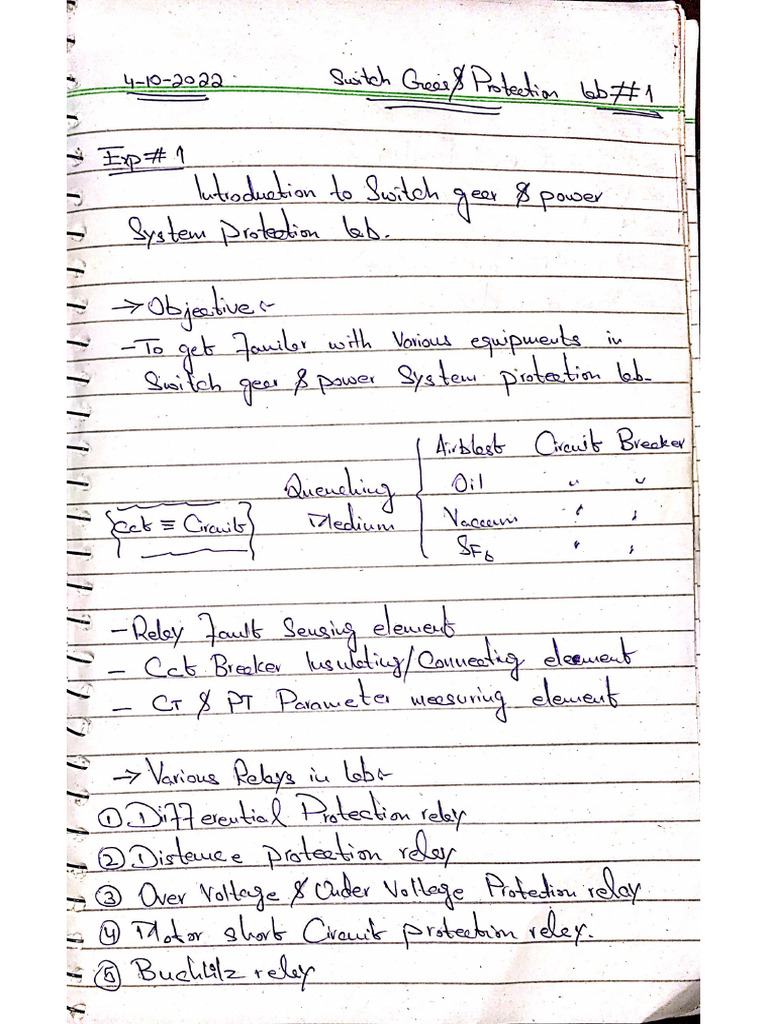 4-10-2022 Switch Gear & Protection lab # 1
Exp # 1
Introduction to Switch gear & power
System protection lab.
→ Objective :-
- To get Familer with Various equipments in
Switch gear & power System protection lab.
Airblast Circuit Breaker
Quenching Oil " "
{cct ≡ Circuit} Medium Vaccum " "
SF6 " "
- Relay Fault Sensing element
- Cct Breaker Insulating/Connecting element
- CT & PT Parameter measuring element
→ Various Relays in lab :-
① Differential Protection relay
② Distance protection relay
③ Over Voltage & Under Voltage Protection relay
④ Motor short Circuit protection relay.
⑤ Buchlilz relay